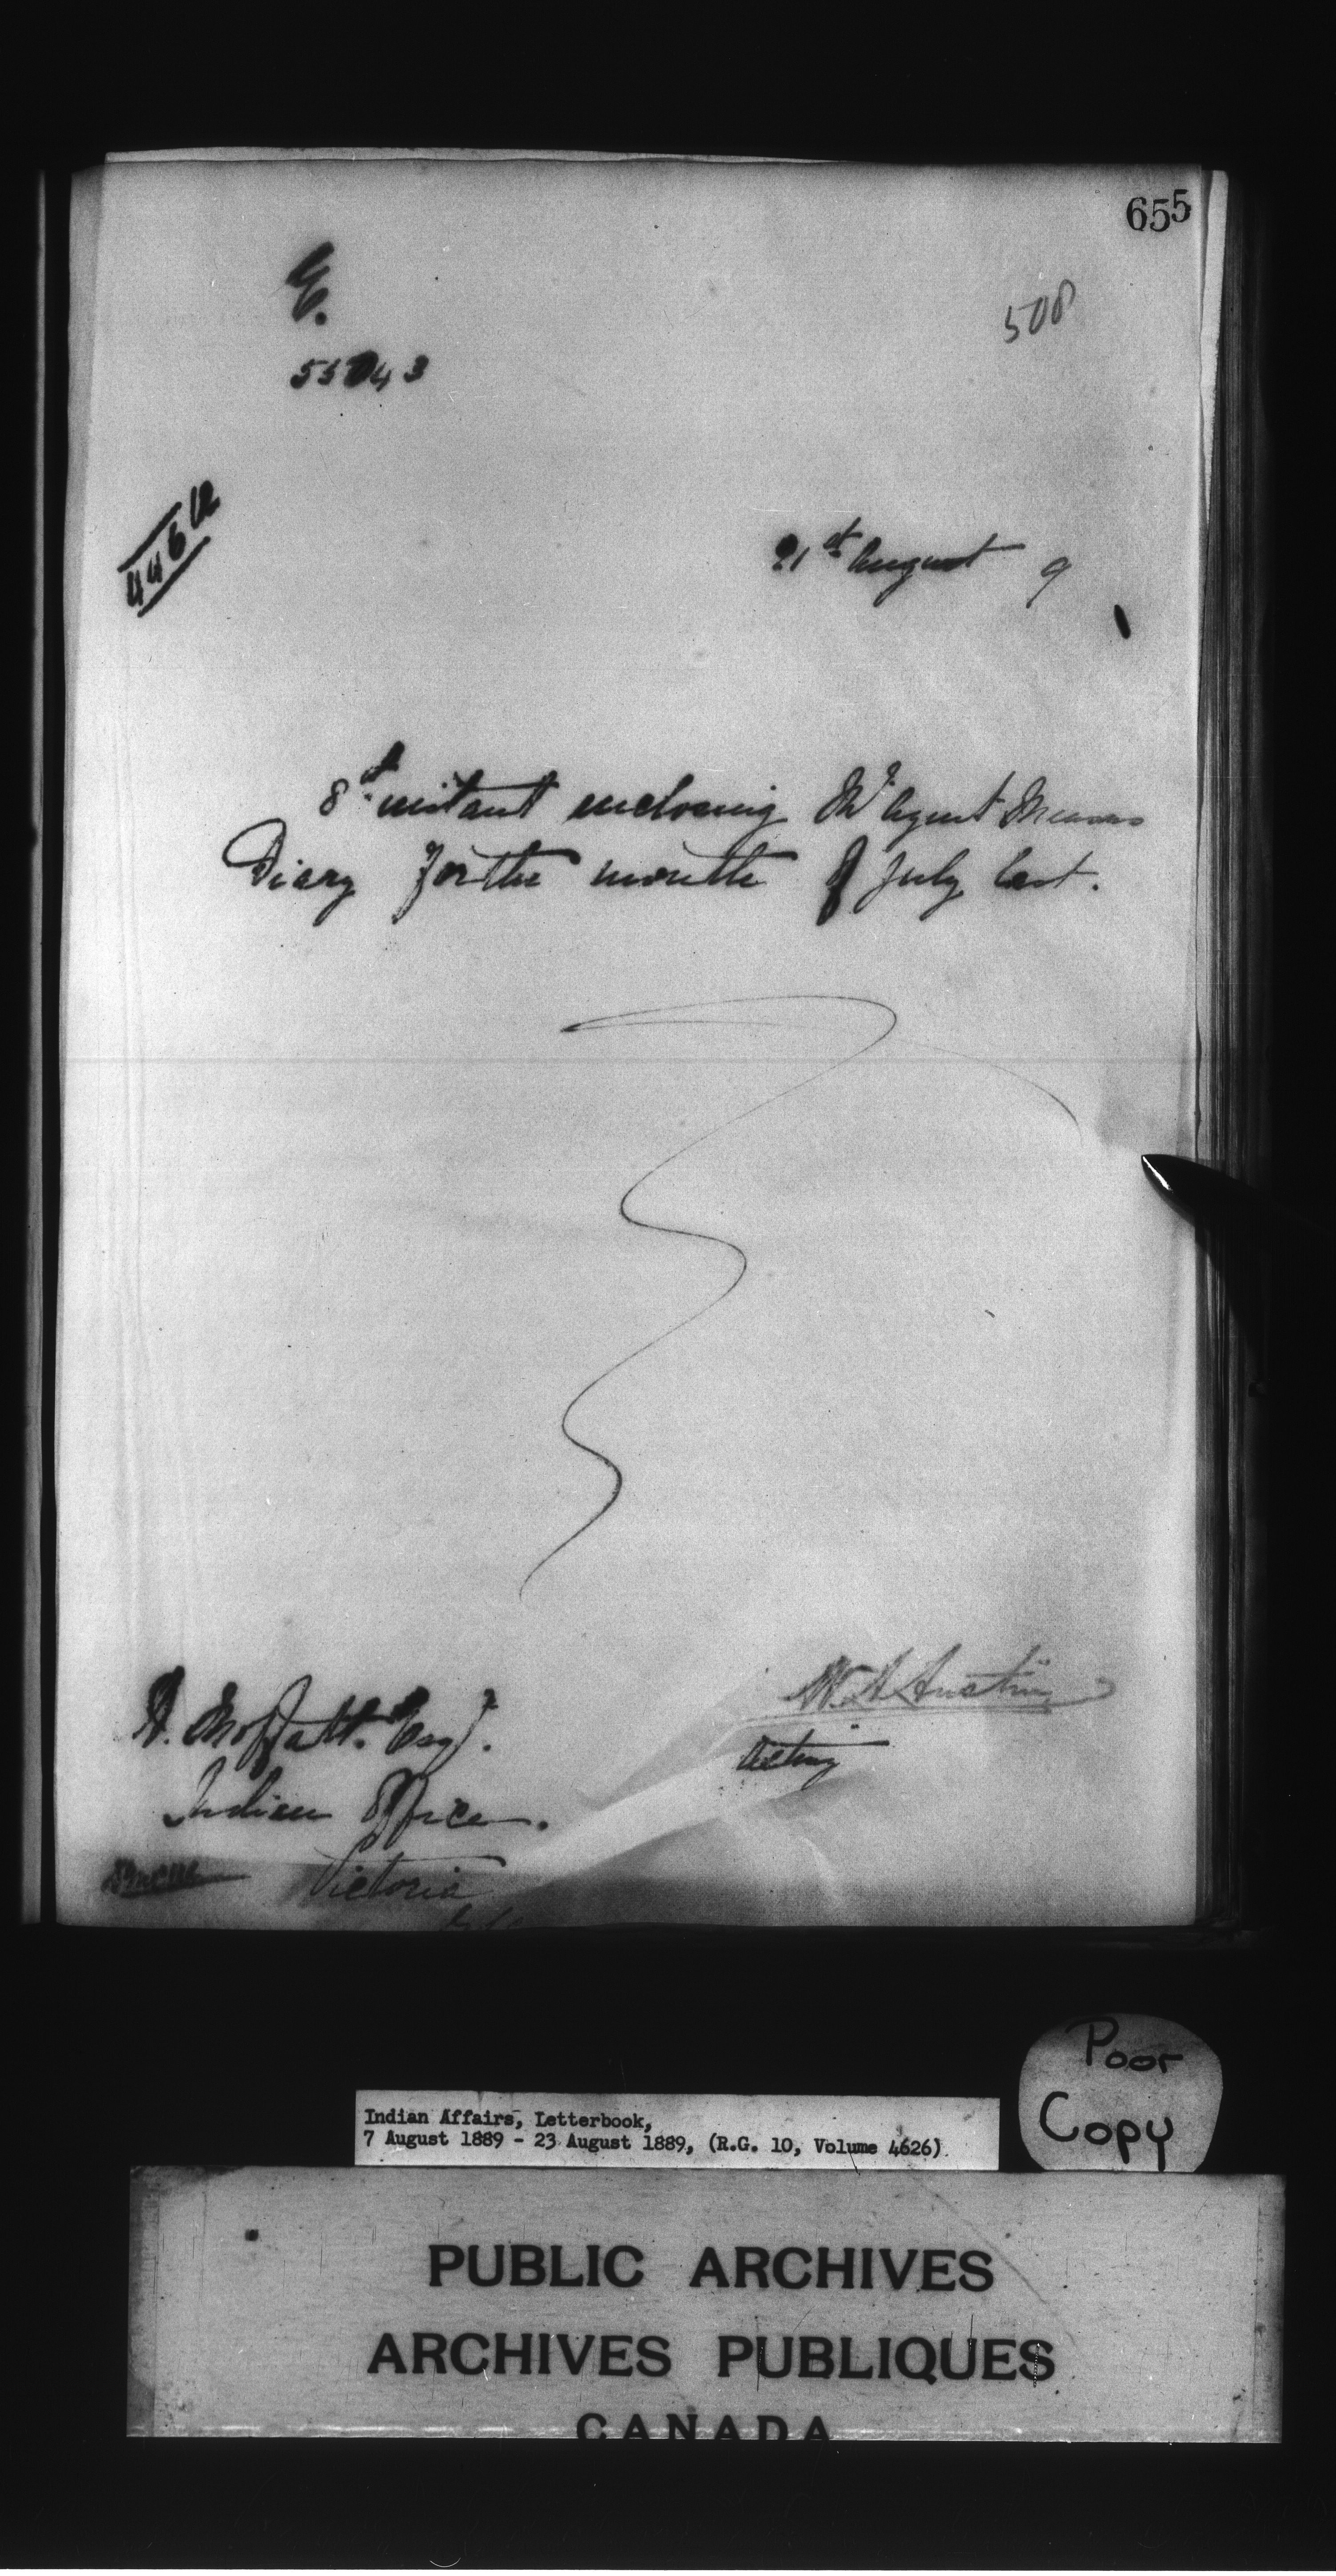 655
E.
508
55043
446 12
21st August 9
8th instant enclosing Mr Agent
Diary for the month of July last.
W. A. Austin
Acting
H. Moffatt. Esqr.
Indian Office.
Victoria
Poor
Copy
Indian Affairs, Letterbook,
7 August 1889 - 23 August 1889, (R.G. 10, Volume 4626)
PUBLIC ARCHIVES
ARCHIVES PUBLIQUES
CANADA